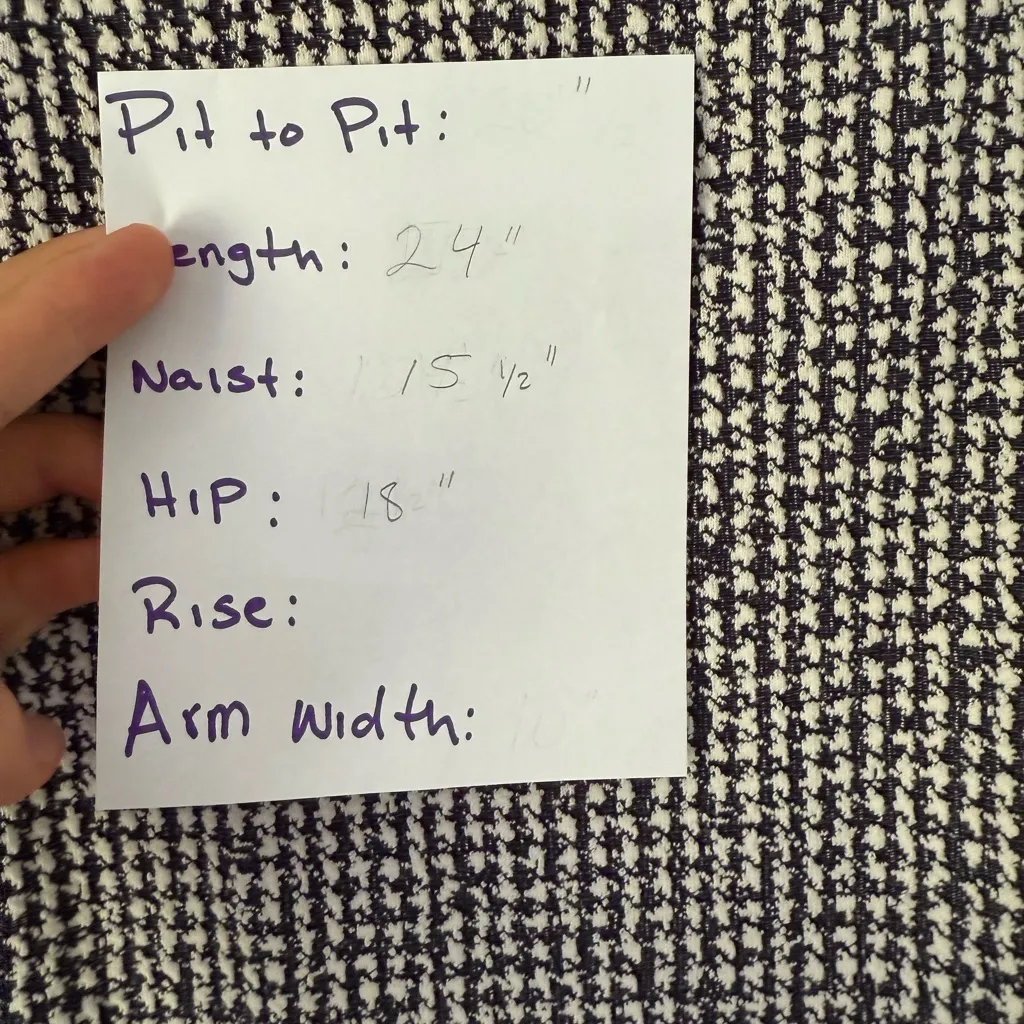 Pit to Pit: "
ength: 24"
Waist: 15 1/2"
Hip: 18"
Rise:
Arm Width: